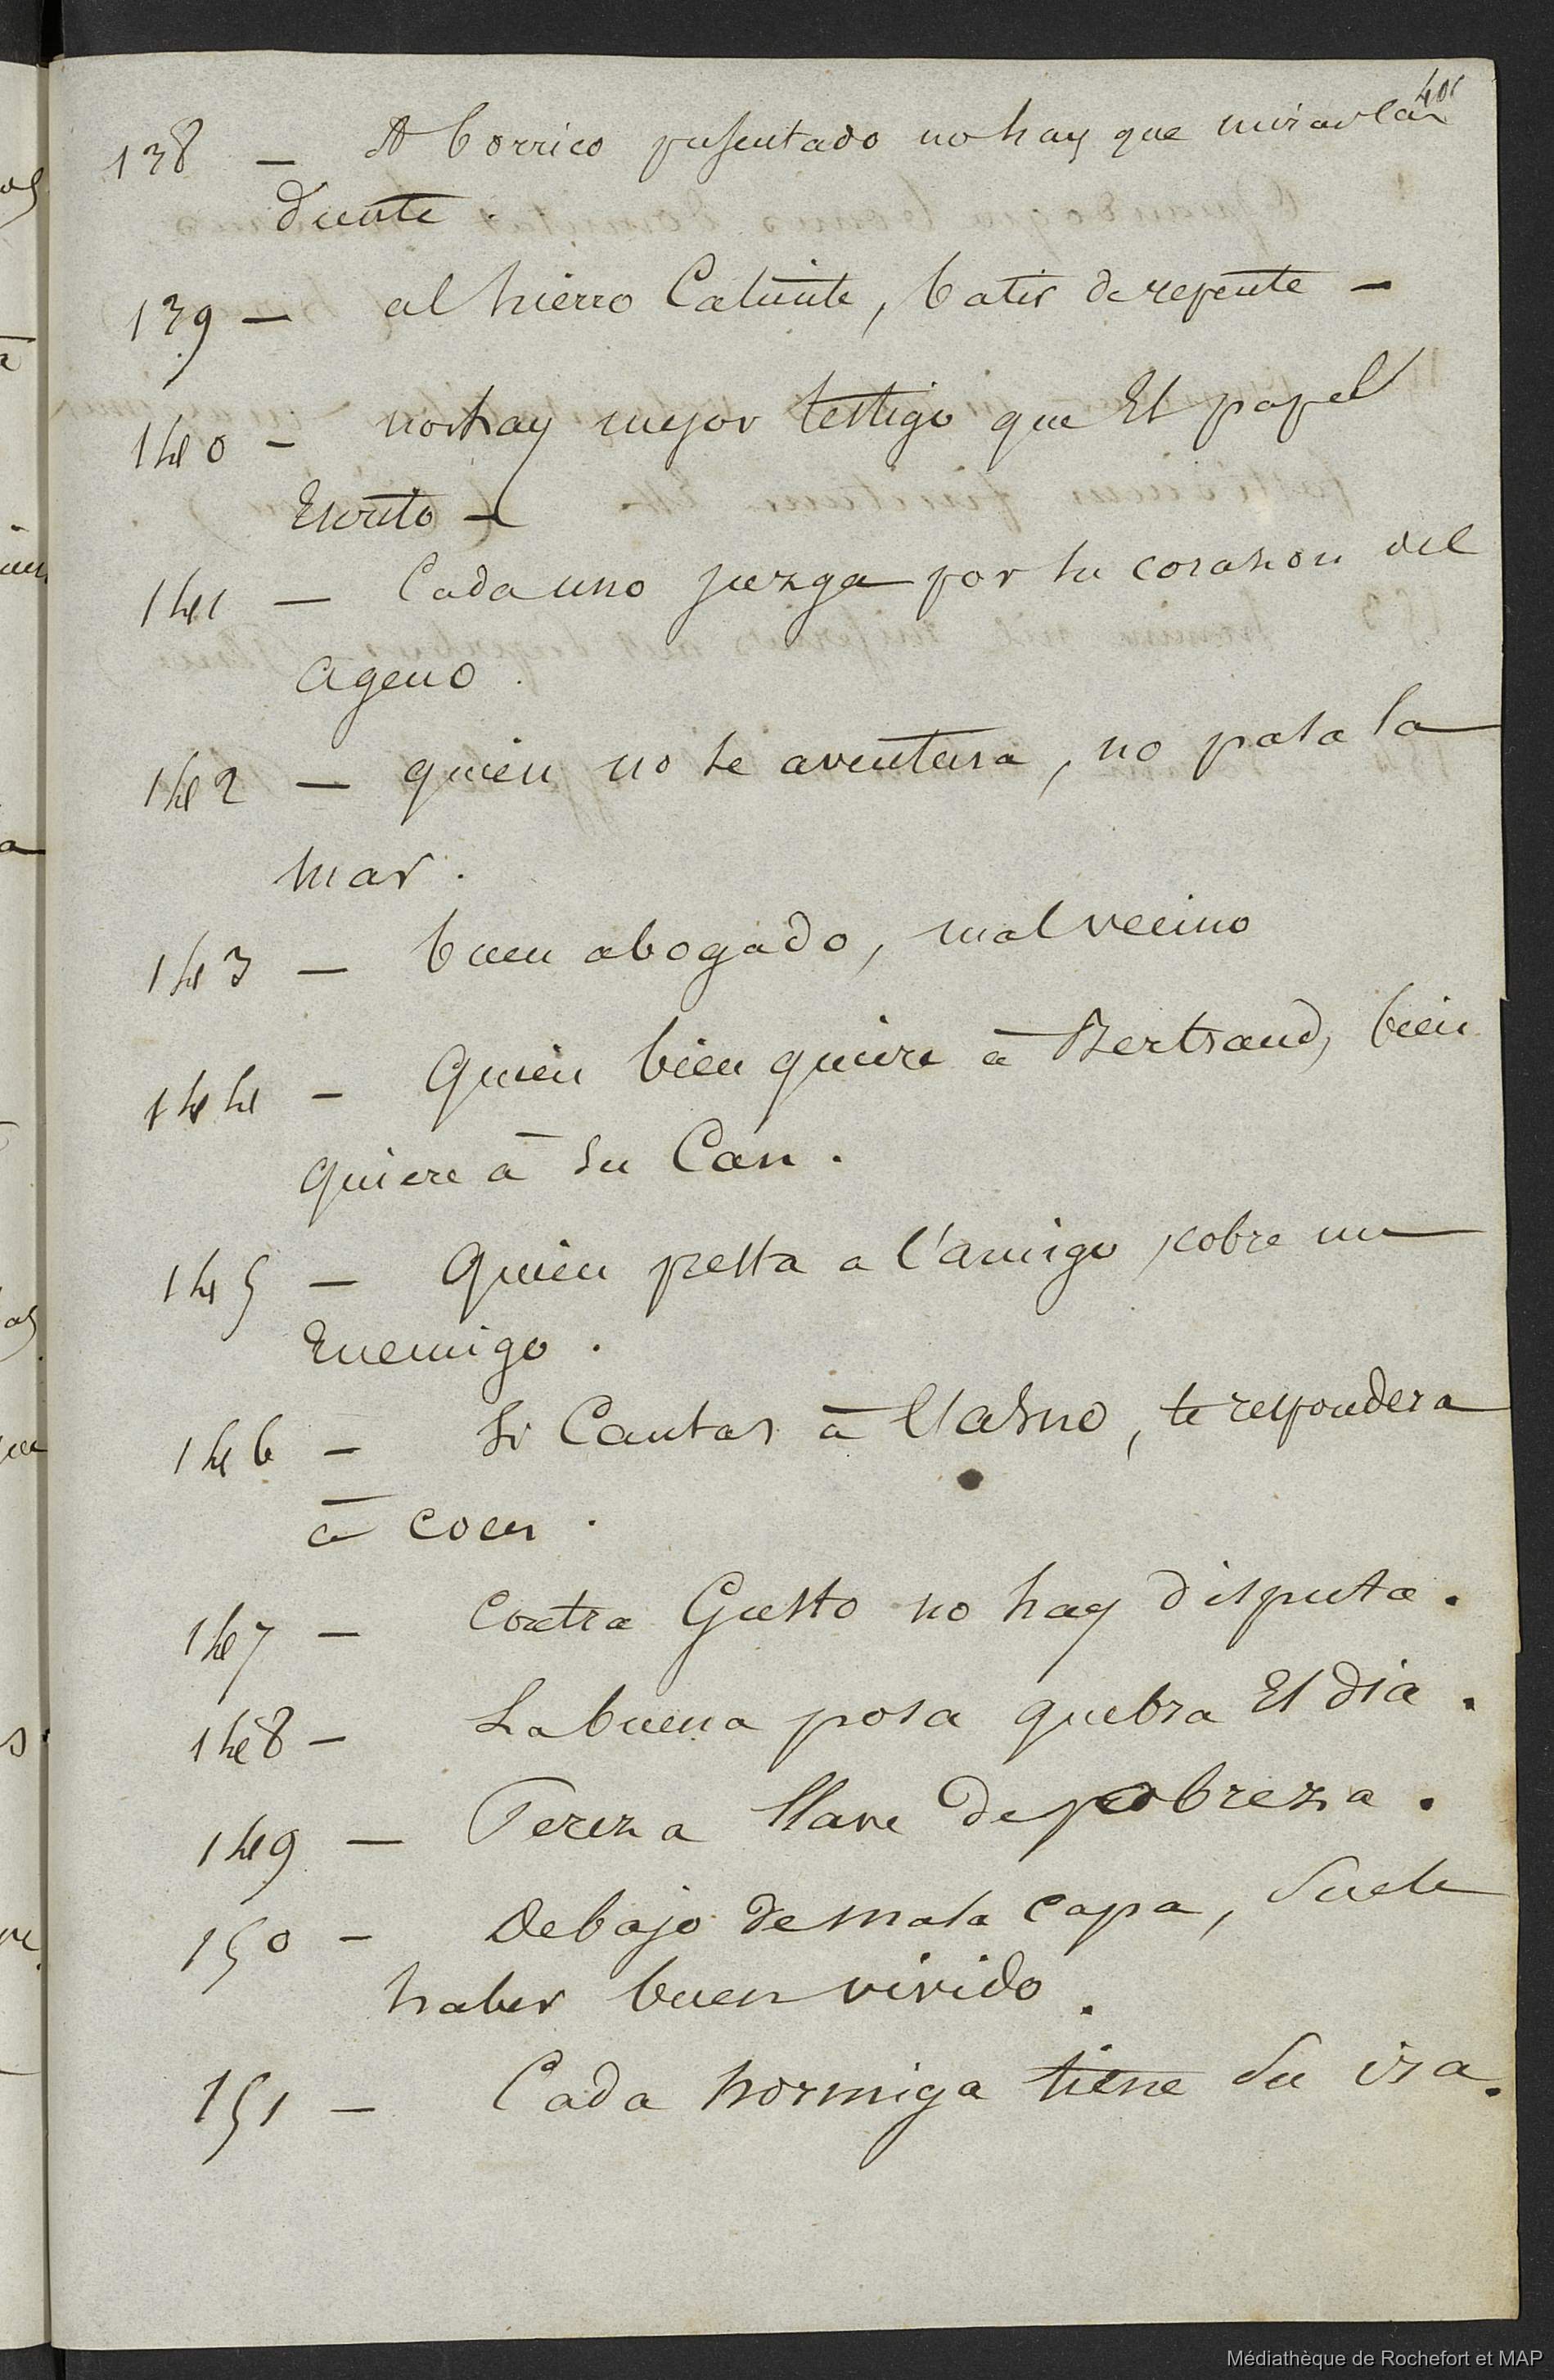 401
138 — A borrico presentado no hay que mirar la
diente.
139 — al hierro Caliente, batir de repente —
140 — no hay mejor testigo que El papel
Escrito —
141 — Cada uno juzga por su corazon del
ageno.
142 — quien no se aventura, no pasa la
mar.
143 — buen abogado, mal vecino
144 — Quien bien quiere à Bertrand, bien
quiere à su Can.
145 — Quien presta a l'amigo, cobre un
Enemigo.
146 — Si Cantas à l'asno, te respondera
à coces.
147 — Contra Gusto no hay disputa.
148 — La buena posa quebra El dia.
149 — Pereza llave de pobreza.
150 — Debajo de mala capa, suele
haber buen vivido.
151 — Cada hormiga tiene su ira.
Médiathèque de Rochefort et MAP